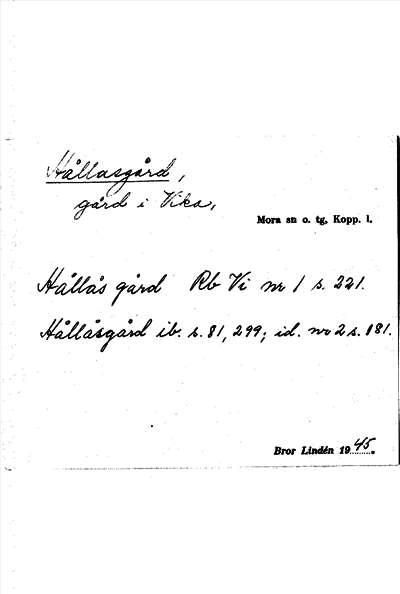 Hållasgård,
gård i Vika,
Mora sn o. tg, Kopp. l.
Hållås gård Rb Vi nr 1 s. 221.
Hållåsgård ib. s. 81, 299; id. nr 2 s. 181.
Bror Lindén 1945.